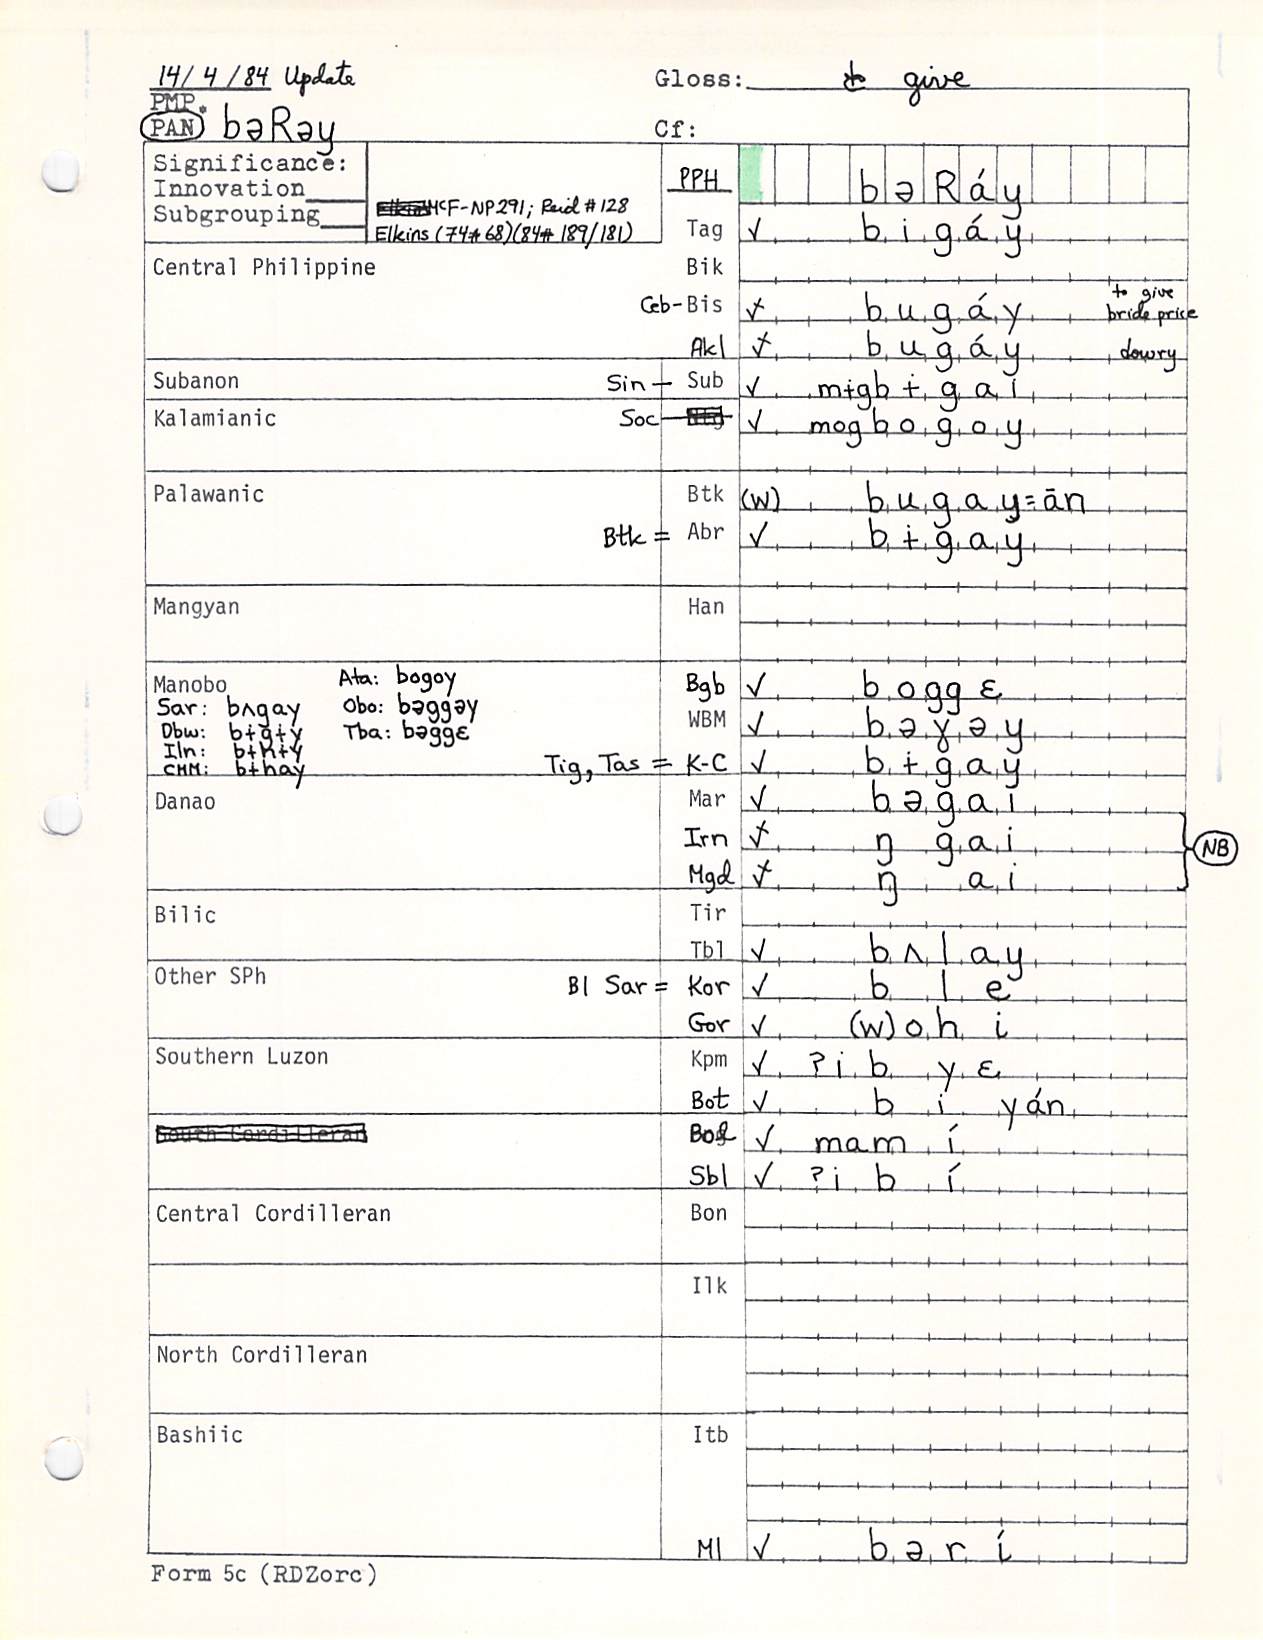 14/4/84 Update
Gloss: to give
PMP
PAN * bəRəy
Cf:
Significance:
Innovation
Subgrouping
McF-NP291; Reid #128
Elkins (74#68)(84# 189/181)
PPH bəRáy
Tag ✓ bigáy
Central Philippine Bik
Ceb-Bis bugáy to give bride price
Akl bugáy dowry
Subanon Sin - Sub ✓ mɨgbɨgai
Kalamianic Soc ✓ mogbogoy
Palawanic Btk (w) bugay=ān
Btk = Abr ✓ bɨgay
Mangyan Han
Manobo Ata: bogoy Bgb ✓ boggɛ
Sar: bʌgay Obo: bəggəy
Dbw: bɨgɨy Tba: bəggɛ WBM ✓ bəɣəy
Iln: bɨhɨy
CMM: bɨhay Tig, Tas = K-C ✓ bɨgay
Danao Mar ✓ bəgai
Irn ŋ gai NB
Mgd ŋ ai
Bilic Tir
Tbl ✓ bʌlay
Other SPh Bl Sar = Kor ✓ b le
Gor ✓ (w)ohi
Southern Luzon Kpm ✓ ʔib yɛ
Bot ✓ bi yán
South Cordilleran ✓ mam í
Sbl ✓ ʔib í
Central Cordilleran Bon
Ilk
North Cordilleran
Bashiic Itb
Ml ✓ bərí
Form 5c (RDZorc)